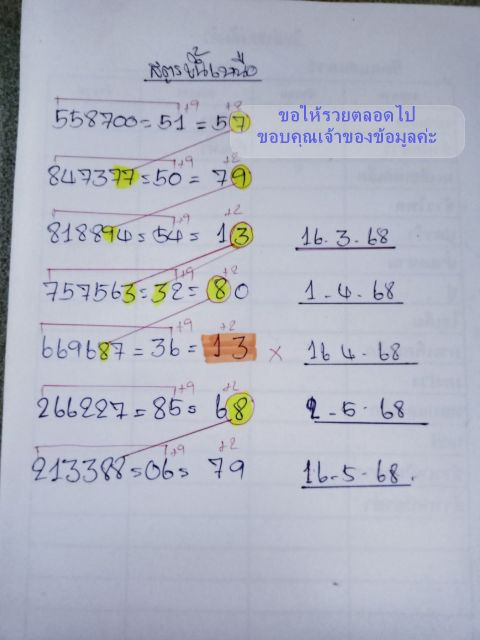 สูตรขึ้นเหนือ
+9 +2
558700 = 51 = 57
ขอให้รวยตลอดไป
ขอบคุณเจ้าของข้อมูลค่ะ
+9 +2
847377 = 50 = 79
+9 +2
818894 = 54 = 13 16.3.68
+9 +2
757563 = 32 = 80 1-4-68
+9 +2
669687 = 36 = 13 × 16 4-68
+9 +2
266227 = 85 = 68 2-5-68
+9 +2
213388 = 06 = 79 16-5-68.